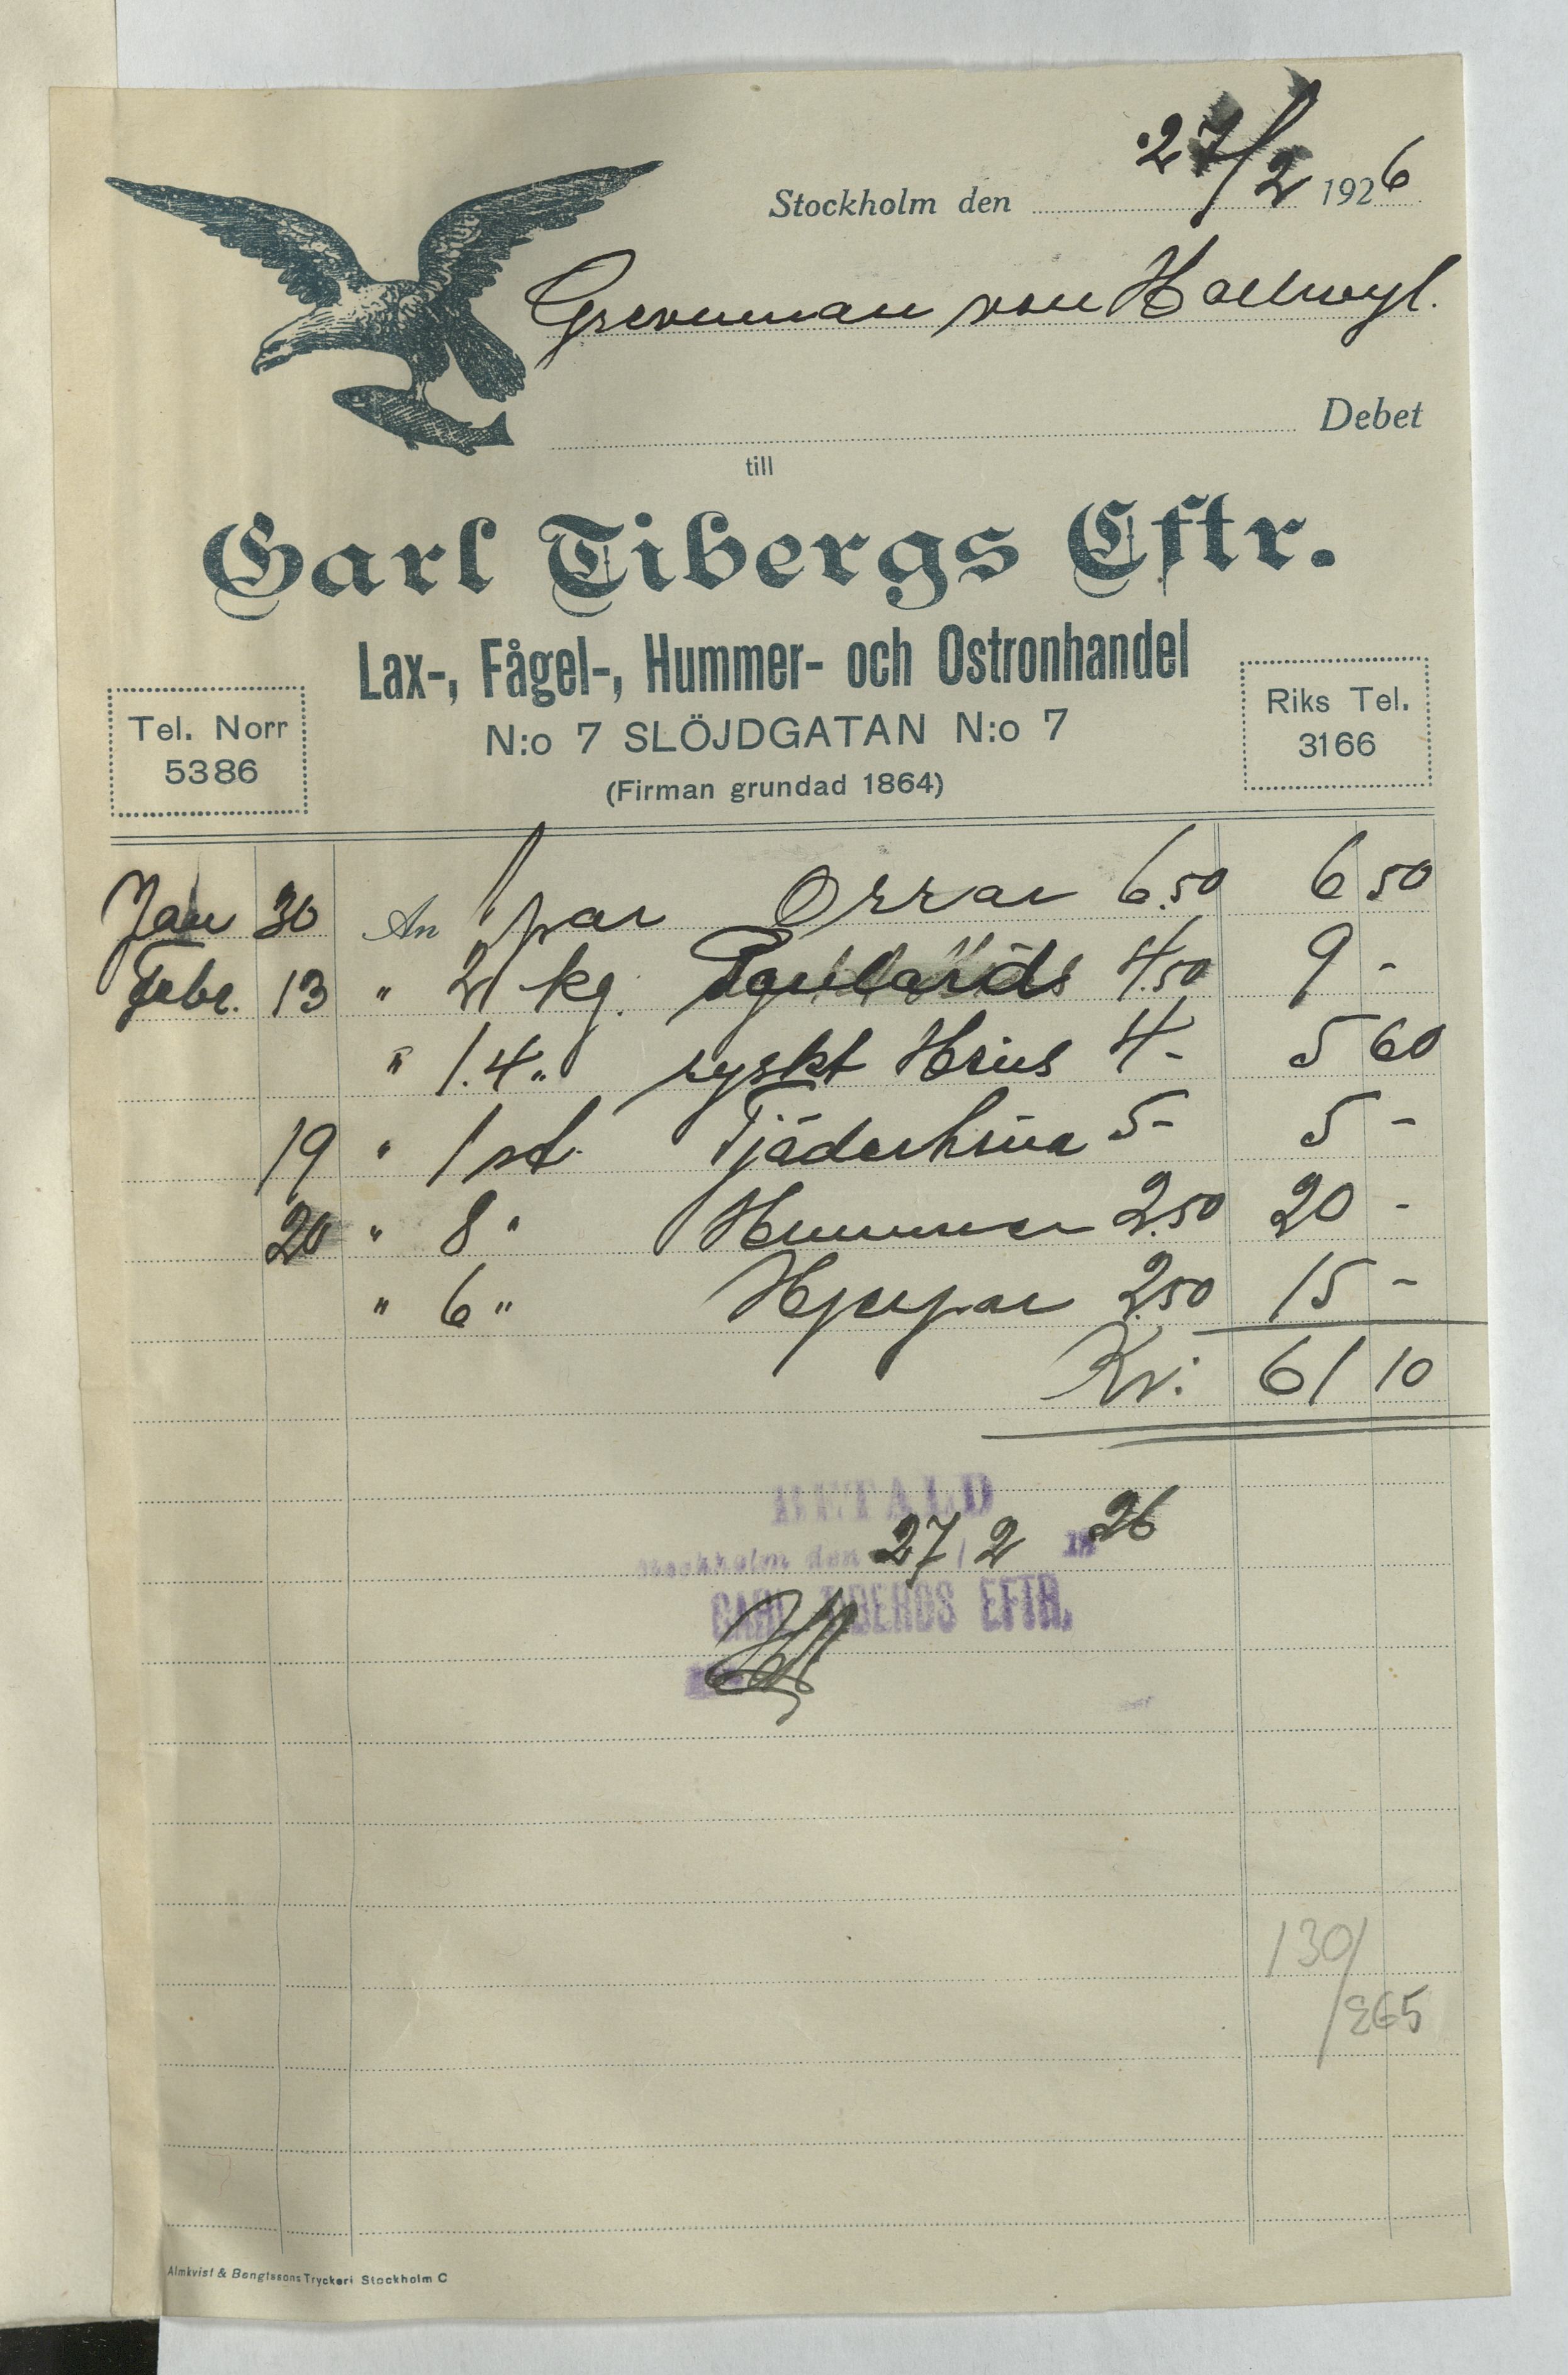 Stockholm den 27/2 1926
Grevinnan von Hallwyl.
Debet
till
Carl Tibergs Eftr.
Lax-, Fågel-, Hummer- och Ostronhandel
N:o 7 SLÖJDGATAN N:o 7
(Firman grundad 1864)
Tel. Norr
5386
Riks Tel.
3166
Jan 30 An 1 par Orrar 6.50 6 50
Febr. 13 " 2 kg. Poulards 4.50 9 -
" 1.4 " ryskt Höns 4- 5 60
19 " 1 st. Tjäderhöna 5- 5 -
20 " 8 " Hummer 2.50 20 -
" 6 " Hjerpar 2.50 15 -
Kr: 61 10
BETALD
Stockholm den 27/2 19 26
CARL TIBERGS EFTR.
130/
/265
Almkvist & Bengtssons Tryckeri Stockholm C